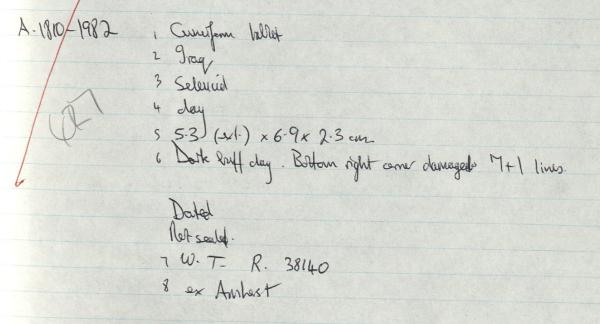 A.1810-1982 1 Cuneiform tablet
2 Iraq
3 Seleucid
4 clay
5 5.3 (ext.) x 6.9 x 2.3 cm
6 Dark buff clay. Bottom right corner damaged 7+1 lines.
Dated
Not sealed.
7 W. T. R. 38140
8 ex Amherst